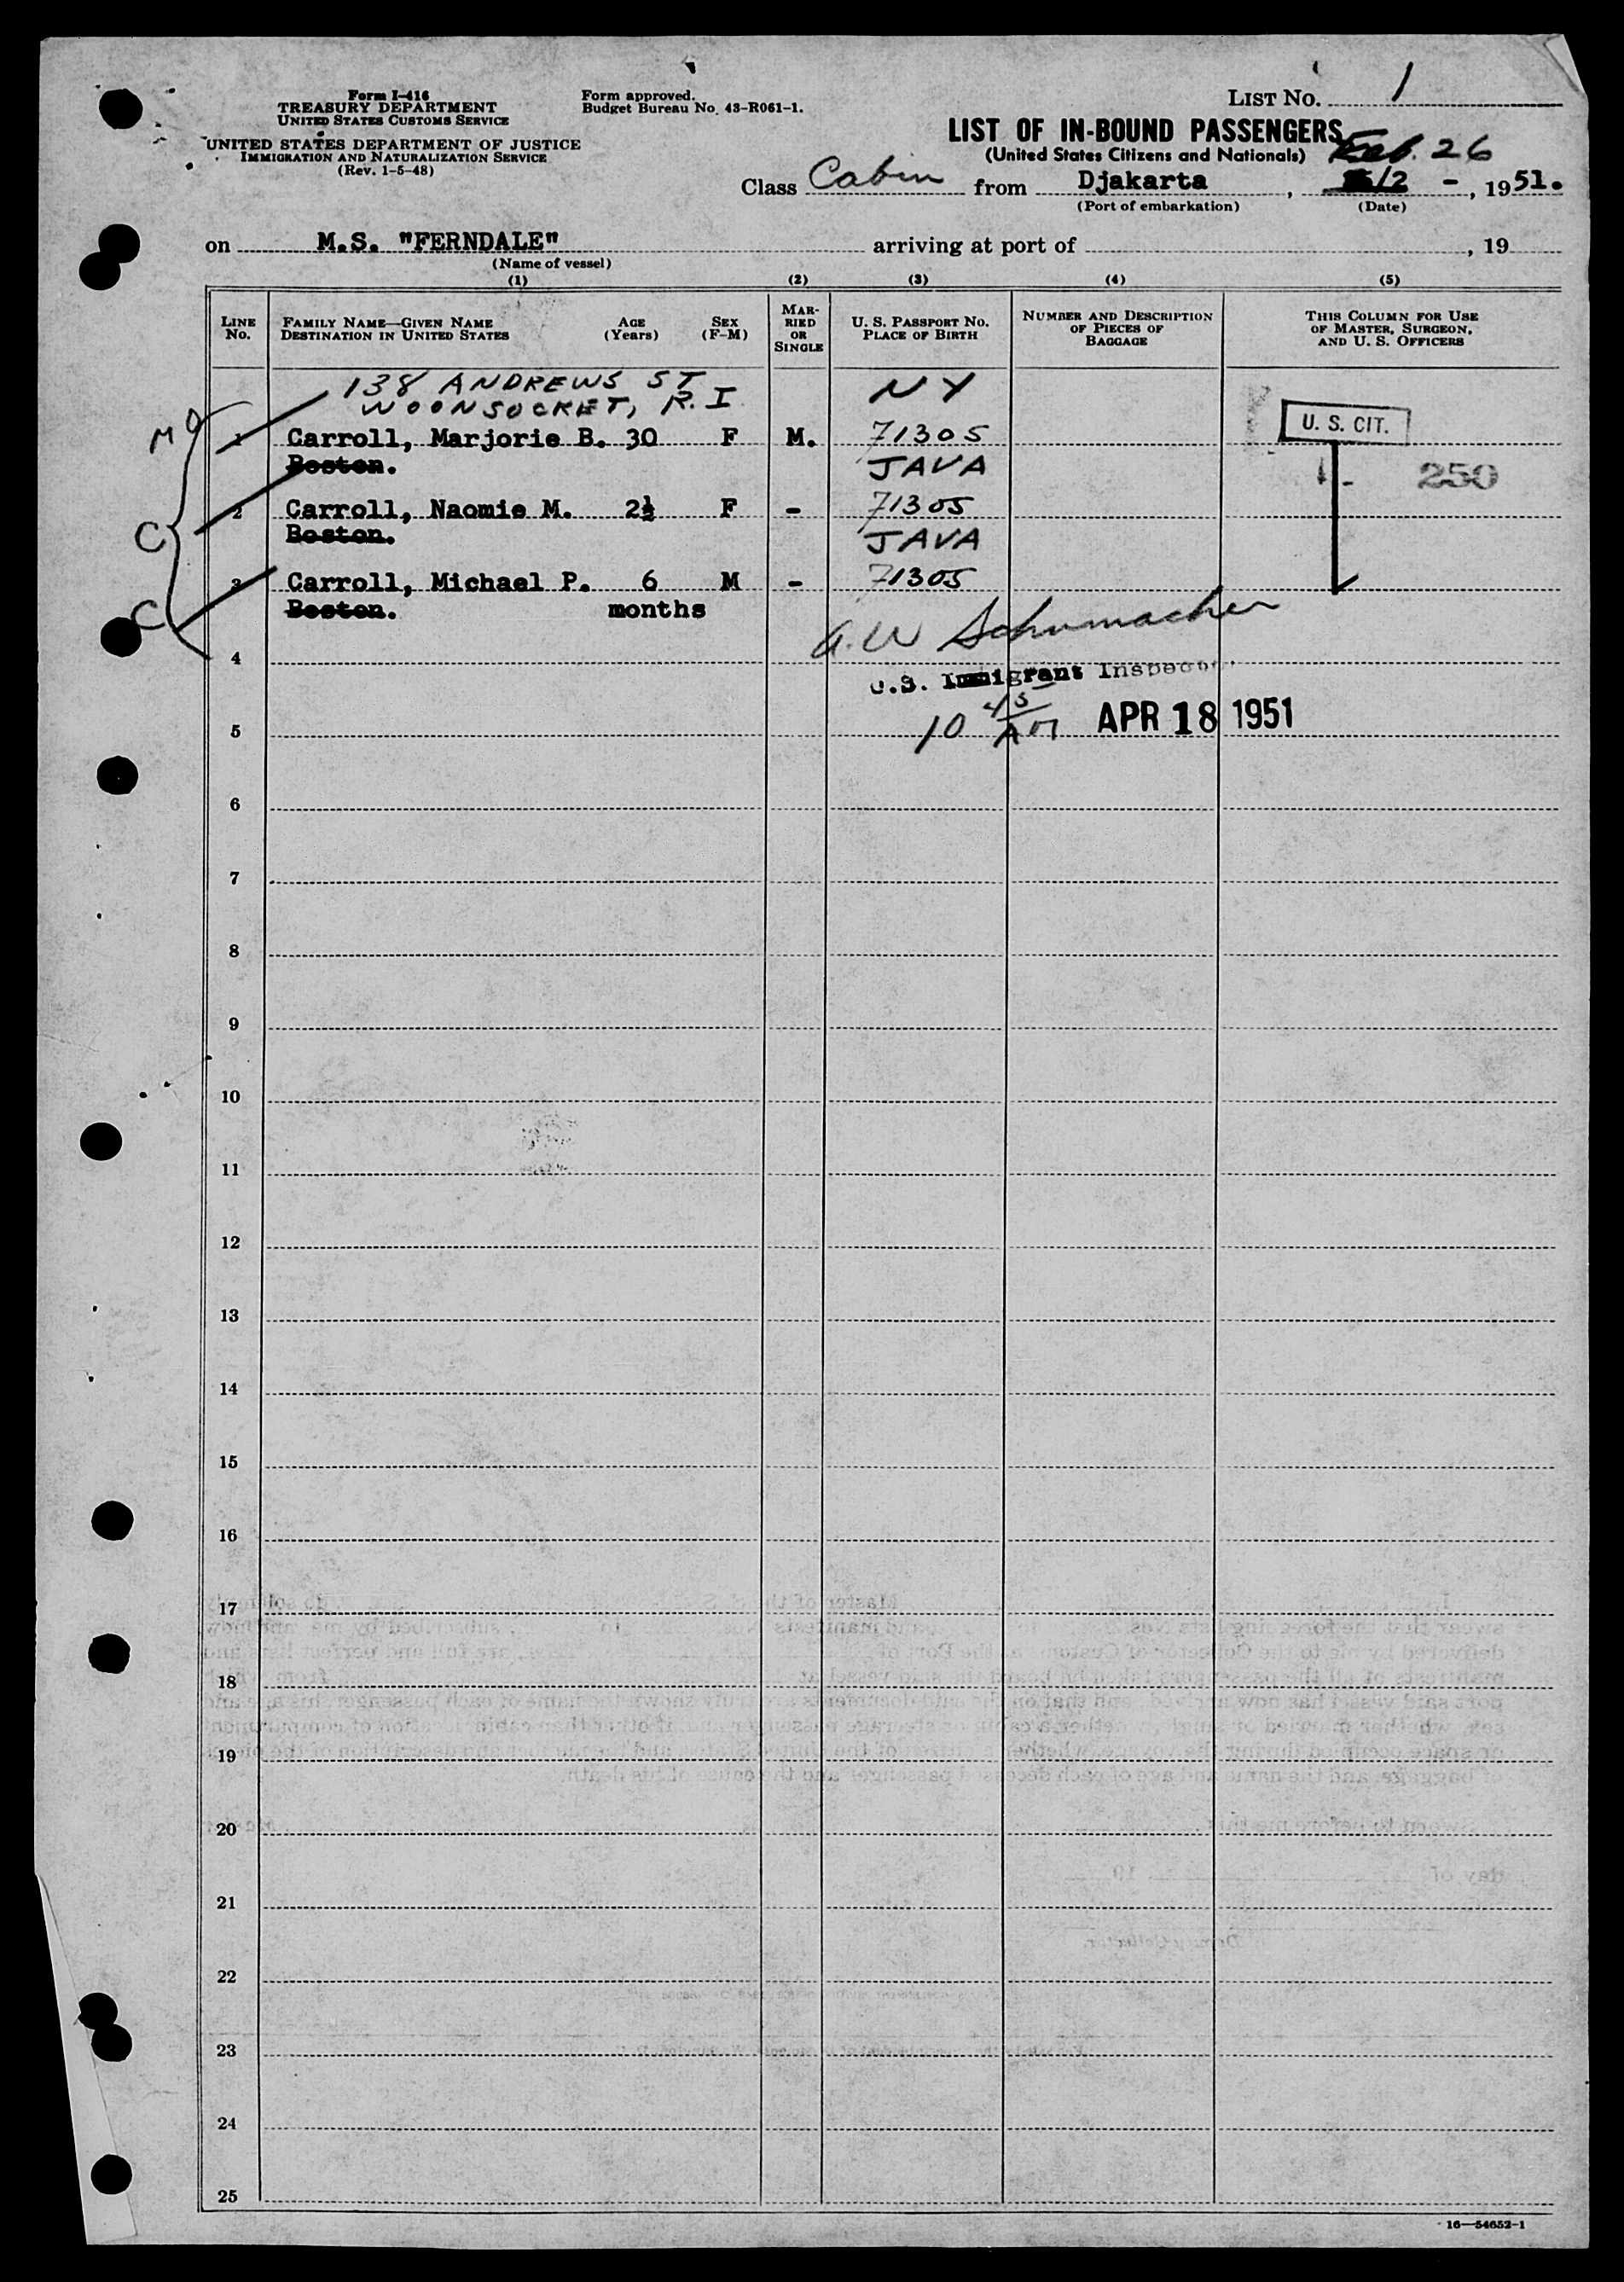 Form I-416
TREASURY DEPARTMENT
UNITED STATES CUSTOMS SERVICE
UNITED STATES DEPARTMENT OF JUSTICE
IMMIGRATION AND NATURALIZATION SERVICE
(Rev. 1-5-48)
Form approved.
Budget Bureau No. 43-R061-1.
LIST NO. 1
LIST OF IN-BOUND PASSENGERS
(United States Citizens and Nationals) Feb. 26
Class Cabin from Djakarta, 12 -, 1951.
(Port of embarkation) (Date)
on M.S. "FERNDALE" arriving at port of , 19
(Name of vessel)
(1) (2) (3) (4) (5)
LINE No. FAMILY NAME—GIVEN NAME DESTINATION IN UNITED STATES AGE (Years) SEX (F-M) MARRIED OR SINGLE U. S. PASSPORT NO. PLACE OF BIRTH NUMBER AND DESCRIPTION OF PIECES OF BAGGAGE THIS COLUMN FOR USE OF MASTER, SURGEON, AND U. S. OFFICERS
138 ANDREWS ST NY
WOONSOCKET, R.I
1 Carroll, Marjorie B. 30 F M. 71305 U. S. CIT.
Boston. JAVA 250
2 Carroll, Naomie M. 2½ F - 71305
Boston. JAVA
C
3 Carroll, Michael P. 6 M - 71305
Boston. months
C
A.W Schumacher
4
U.S. Immigrant Inspector
5 10 45 AM APR 18 1951
6
7
8
9
10
11
12
13
14
15
16
17
18
19
20
21
22
23
24
25
16—54652-1